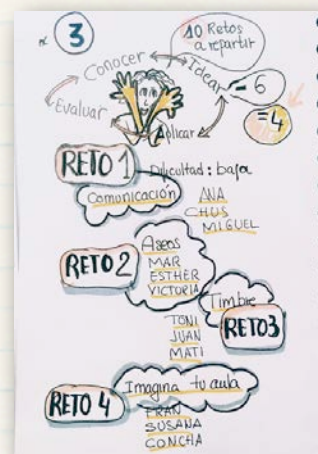 nº 3
10 Retos
a repartir
Conocer
Idear
- 6
= 4
Evaluar
Aplicar
RETO 1
Dificultad: baja
Comunicación
ANA
CHUS
MIGUEL
RETO 2
Aseos
MAR
ESTHER
VICTORIA
Timbre
RETO3
TONI
JUAN
MATI
Imagina tu aula
RETO 4
FRAN
SUSANA
CONCHA